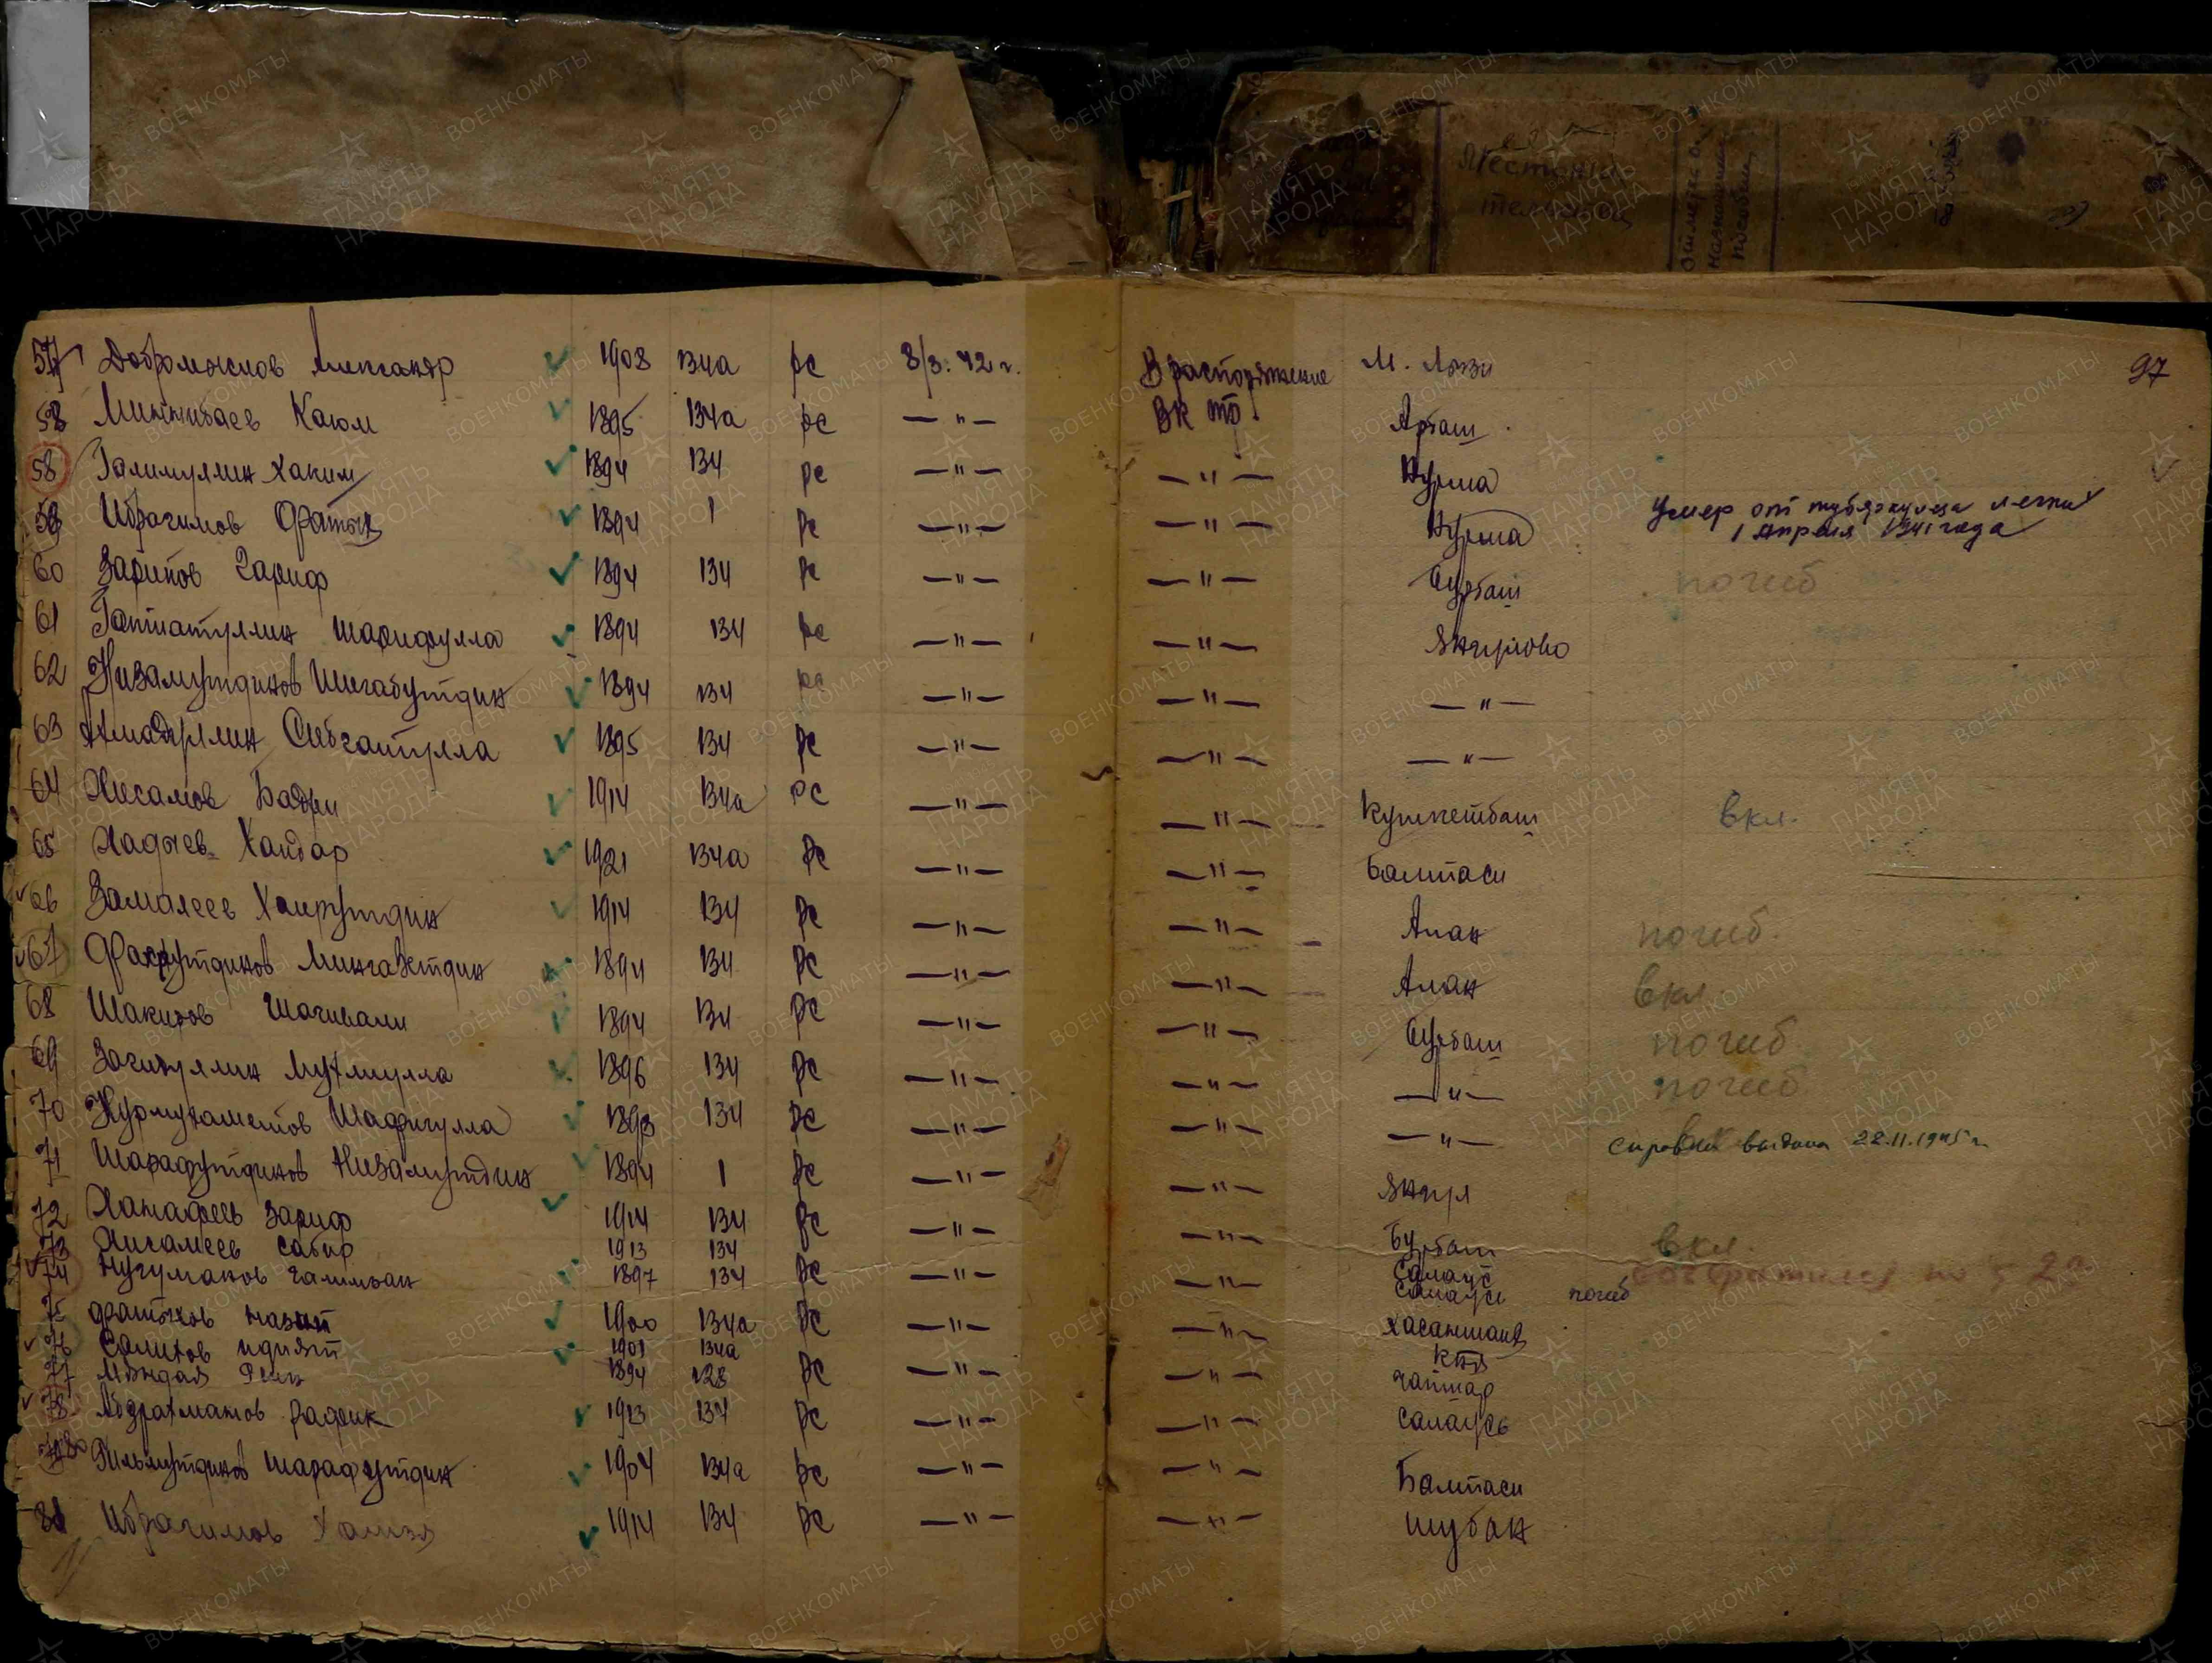 Местожи
тельство
Отметка о
назначении
пособия
97
57 Добромыслов Александр 1908 134а рс 8/3.42 г. В распоряжение М. Лязи
58 Миннибаев Каюм 1895 134а рс —"— ВК ТР. Арбаш
58 Галимуллин Хаким 1894 134 рс —"— —"— Нурма
59 Ибрагимов Фатых 1894 1 рс —"— —"— Нурма Умер от туберкулеза легких
1 Апреля 1941 года
60 Зарипов Гариф 1894 134 рс —"— —"— Бурбаш погиб
61 Гатиатуллин Шарифулла 1894 134 рс —"— —"— Янгулово
62 Низамутдинов Шигабутдин 1894 134 рс —"— —"— —"—
63 Ахмадуллин Сибгатулла 1895 134 рс —"— —"— —"—
64 Хисамов Бадри 1914 134а рс —"— —"— Кушкетбаш вкл.
65 Хадыев Хайдар 1921 134а рс —"— —"— Балтаси
66 Замалеев Хайрутдин 1914 134 рс —"— —"— Алан погиб.
67 Фахрутдинов Мингазетдин 1894 134 рс —"— —"— Алан вкл.
68 Шакиров Шагивали 1894 134 рс —"— —"— Бурбаш погиб
69 Загидуллин Лутфулла 1896 134 рс —"— —"— —"— погиб
70 Нурмухаметов Шафигулла 1893 134 рс —"— —"— —"— справка выдана 28.11.1945 г
71 Шарафутдинов Низамутдин 1894 1 рс —"— —"— Янгул
72 Ханафеев Зариф 1914 134 рс —"— —"— Бурбаш вкл.
73 Хисамеев Сабир 1913 134 Салаусь
74 Нугуманов Галимзан 1897 134 рс —"— —"— Салаусь погиб
75 Фатыхов Назип 1900 134а рс —"— —"— Хасаншаих
76 Салихов Идият 1901 134а
77 1894 128 рс —"— —"— Чапшар
78 Абдрахманов Рафик 1923 134 рс —"— —"— Салаусь
Гильмутдинов Шарафутдин 1904 134а рс —"— —"— Балтаси
81 Ибрагимов Хамзя 1914 134 рс —"— —"— Шубан